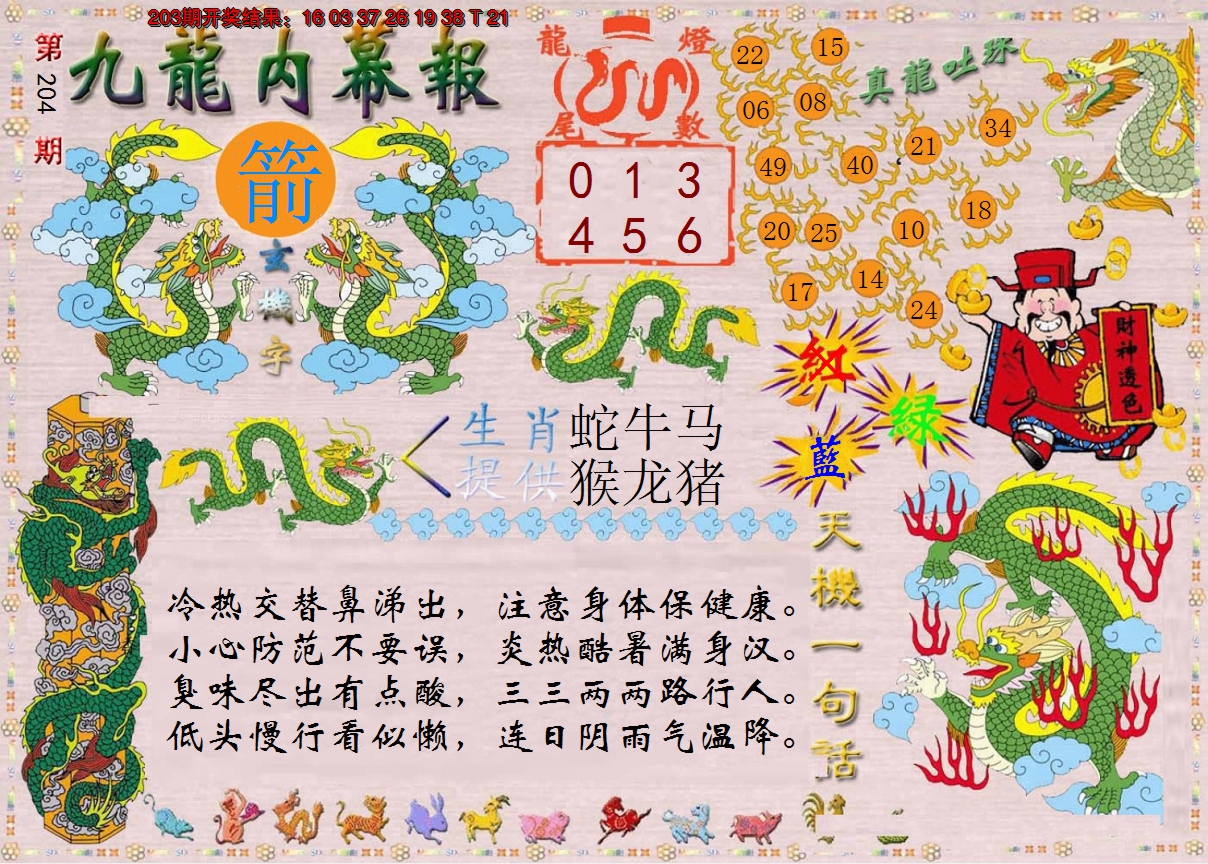 203期开奖结果：16 03 37 26 19 38 T 21
第204期
九龍内幕報
箭
玄機字
龍燈尾數
0 1 3
4 5 6
真龍吐珠
22 15
06 08
49 40 21 34
20 25 10 18
17 14 24
財神透色
紅
綠
藍
生肖 蛇牛马
提供 猴龙猪
天機一句話
冷热交替鼻涕出，注意身体保健康。
小心防范不要误，炎热酷暑满身汉。
臭味尽出有点酸，三三两两路行人。
低头慢行看似懒，连日阴雨气温降。